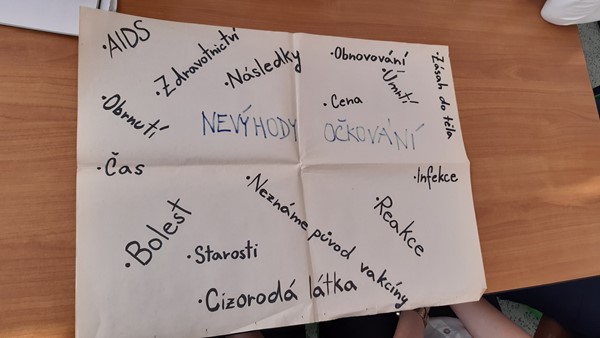 •AIDS
•Zdravotnictví
•Následky
•Obnovování
•Úmrtí
•Zásah do těla
•Obrnutí
•Cena
NEVÝHODY OČKOVÁNÍ
•Čas
•Infekce
•Neznáme původ vakcíny
•Reakce
•Bolest
•Starosti
•Cizorodá látka